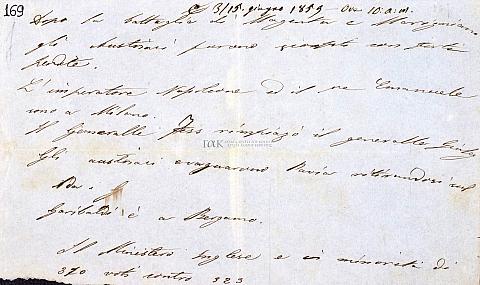 169
3/15 giugno 1859 Ore 10. a.m.
Dopo la battaglia di Magenta e Marignano
gli Austriaci furono con forti
perdite.
L'imperatore Napoleone ed il re Emanuele
sono a Milano.
Il Generalle Hess rimpiazò il generalle
Gli austriaci evaquarono Pavia retirandosi sul
Ada.
Garibaldi è a Bergamo.
Il Ministero Inglese e in minorità di
310 voti contro 323
ΓΑΚ